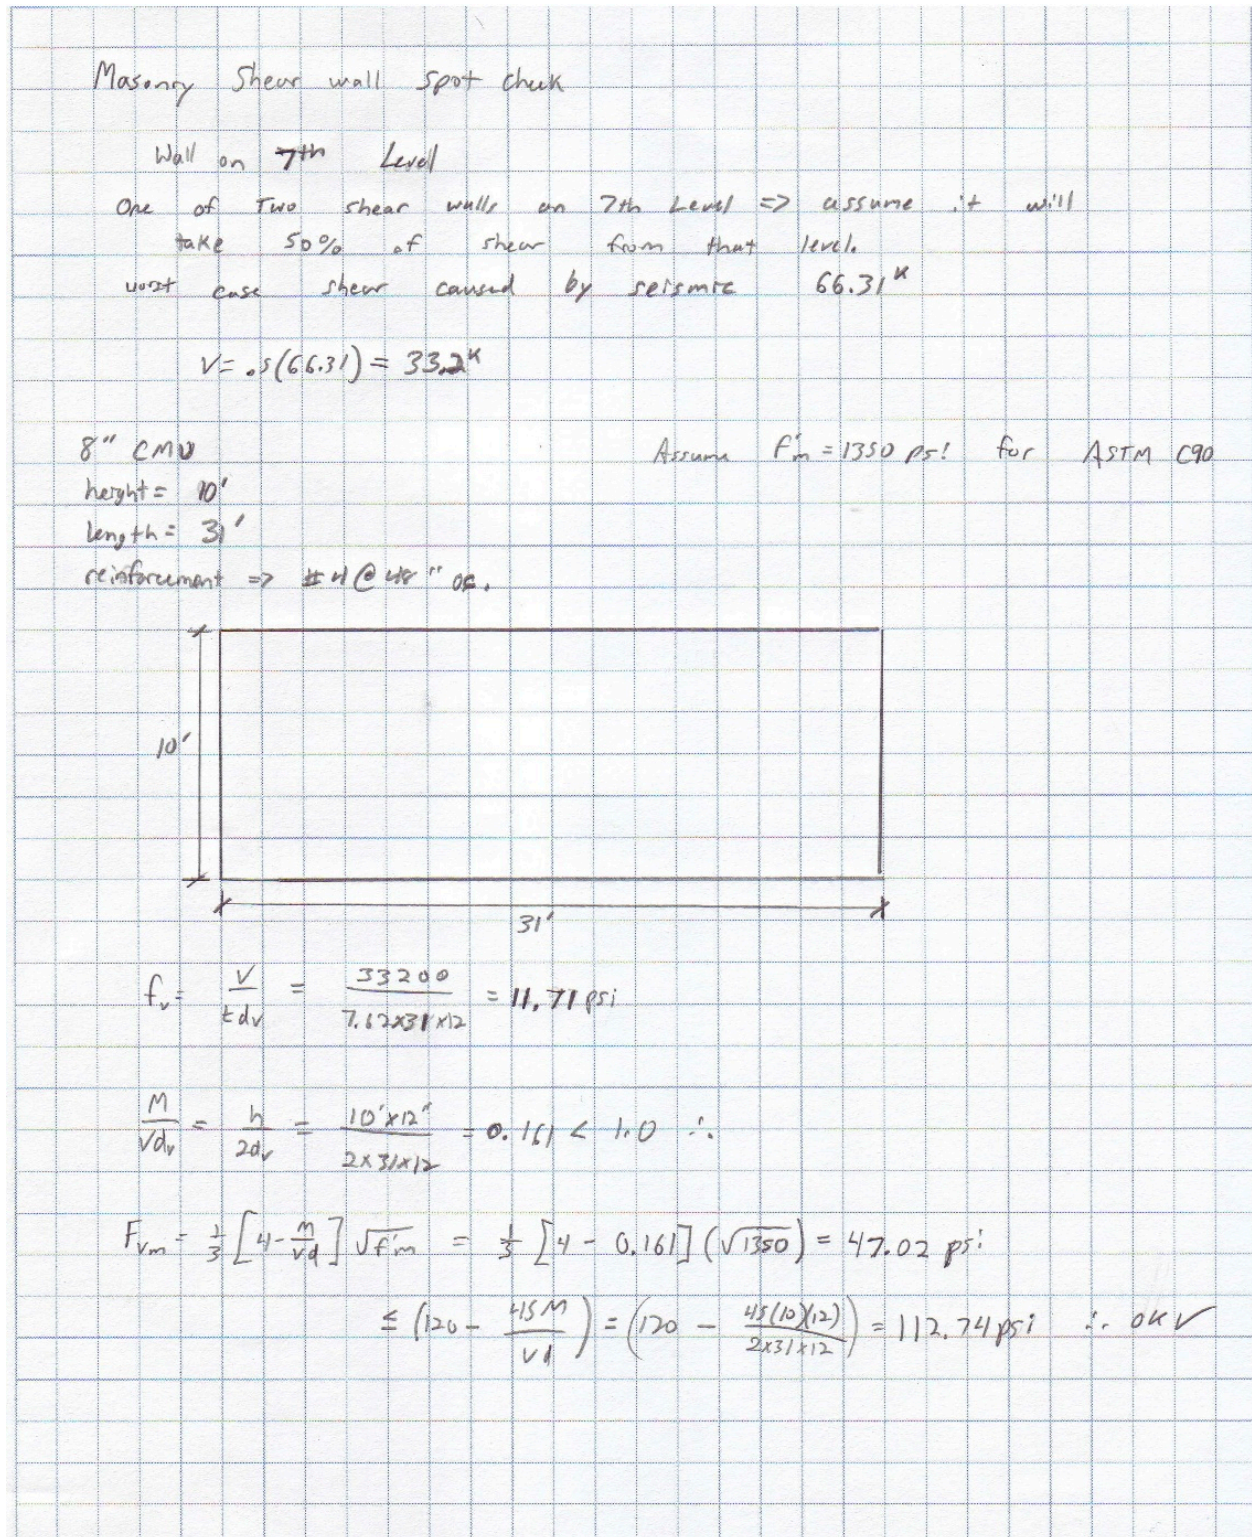 Masonry Shear wall spot check
Wall on 7th Level
One of Two shear walls on 7th Level => assume it will
take 50% of shear from that level.
worst case shear caused by seismic 66.31ᴷ
V = .5(66.31) = 33.2ᴷ
8" CMU Assume f'm = 1350 psi for ASTM C90
height = 10'
length = 31'
reinforcement => #4 @ 48" oc.
10'
31'
fᵥ = V / tdᵥ = 33200 / 7.62x31x12 = 11.71 psi
M / Vdᵥ = h / 2dᵥ = 10'x12" / 2x31x12 = 0.161 < 1.0 ∴
Fᵥₘ = 1/3 [4 - M/Vd] √f'm = 1/3 [4 - 0.161] (√1350) = 47.02 psi
≤ (120 - 45M / Vd) = (120 - 45(10)(12) / 2x31x12) = 112.74 psi ∴ OK ✓